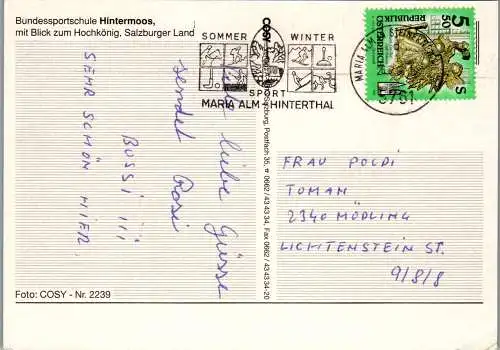 Bundessportschule Hintermoos,
mit Blick zum Hochkönig, Salzburger Land
SOMMER WINTER
SPORT
MARIA ALM - HINTERTHAL
MARIA ALM
5761
REPUBLIK
ÖSTERREICH
5
50
S
liebe Grüsse
sendet Rosi
BUSSI !!!
SEHR SCHÖN HIER.
COSY
Salzburg, Postfach 35, ☎ 0662/43 43 34, Fax 0662/43 43 34-20
FRAU POLDI
TOMAN
2340 MÖDLING
LICHTENSTEIN ST.
9/8/8
Foto: COSY - Nr. 2239